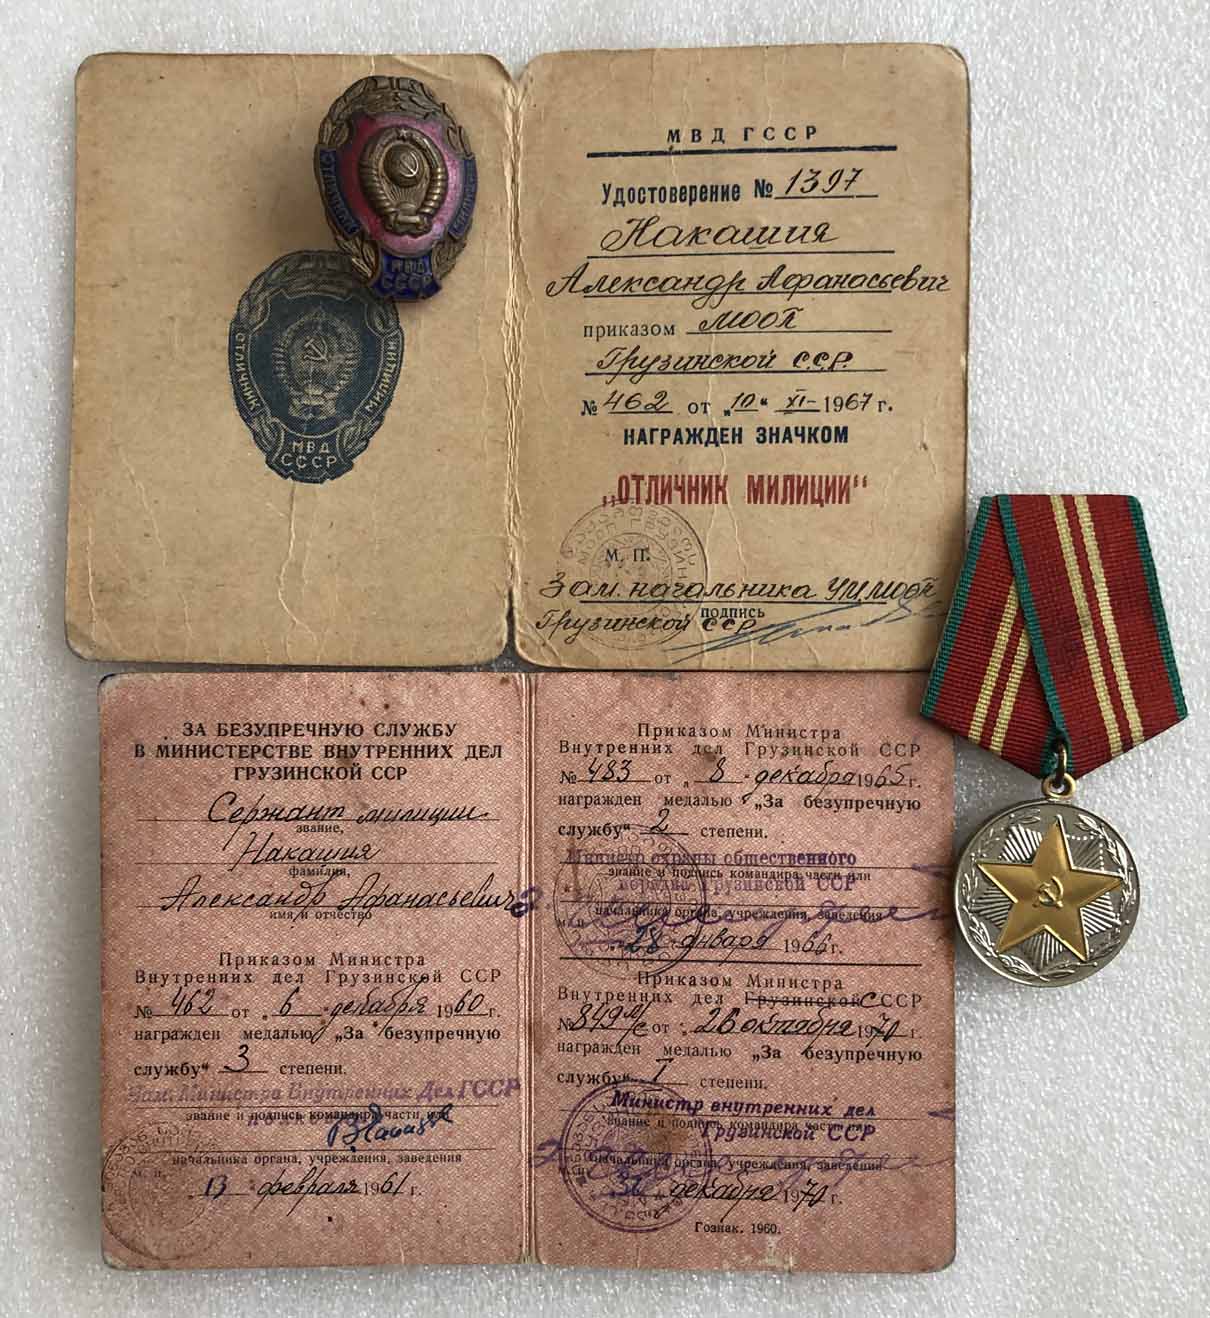 ОТЛИЧНИК МИЛИЦИИ
МВД
СССР
ОТЛИЧНИК МИЛИЦИИ
МВД
СССР
МВД ГССР
Удостоверение № 1397
Накашия
Александр Афанасьевич
приказом МООП
Грузинской ССР.
№ 462 от „10“ XI- 1967 г.
НАГРАЖДЕН ЗНАЧКОМ
„ОТЛИЧНИК МИЛИЦИИ“
М. П.
Зам. начальника УМ МООП
подпись
Грузинской ССР
ЗА БЕЗУПРЕЧНУЮ СЛУЖБУ
В МИНИСТЕРСТВЕ ВНУТРЕННИХ ДЕЛ
ГРУЗИНСКОЙ ССР
Сержант милиции
звание,
Накашия
фамилия,
Александр Афанасьевич
имя и отчество
Приказом Министра
Внутренних дел Грузинской ССР
№ 462 от „6 “ декабря 1960 г.
награжден медалью „За безупречную
службу“ 3 степени.
Зам. Министра Внутренних Дел ГССР
звание и подпись командира части или
начальника органа, учреждения, заведения
13 февраля 1961 г.
Приказом Министра
Внутренних дел Грузинской ССР
№ 483 от „ 8 “ декабря 1965 г.
награжден медалью „За безупречную
службу“ 2 степени.
Министр охраны общественного
звание и подпись командира части или
порядка Грузинской ССР
начальника органа, учреждения, заведения
„28“ января 1966 г.
Приказом Министра
Внутренних дел Грузинской СССР
№ 849 м/с от „ 26 октября 1970 г.
награжден медалью „За безупречную
службу“ I степени.
Министр внутренних дел
звание и подпись командира части или
Грузинской ССР
начальника органа, учреждения, заведения
декабря 1970 г.
Гознак. 1960.